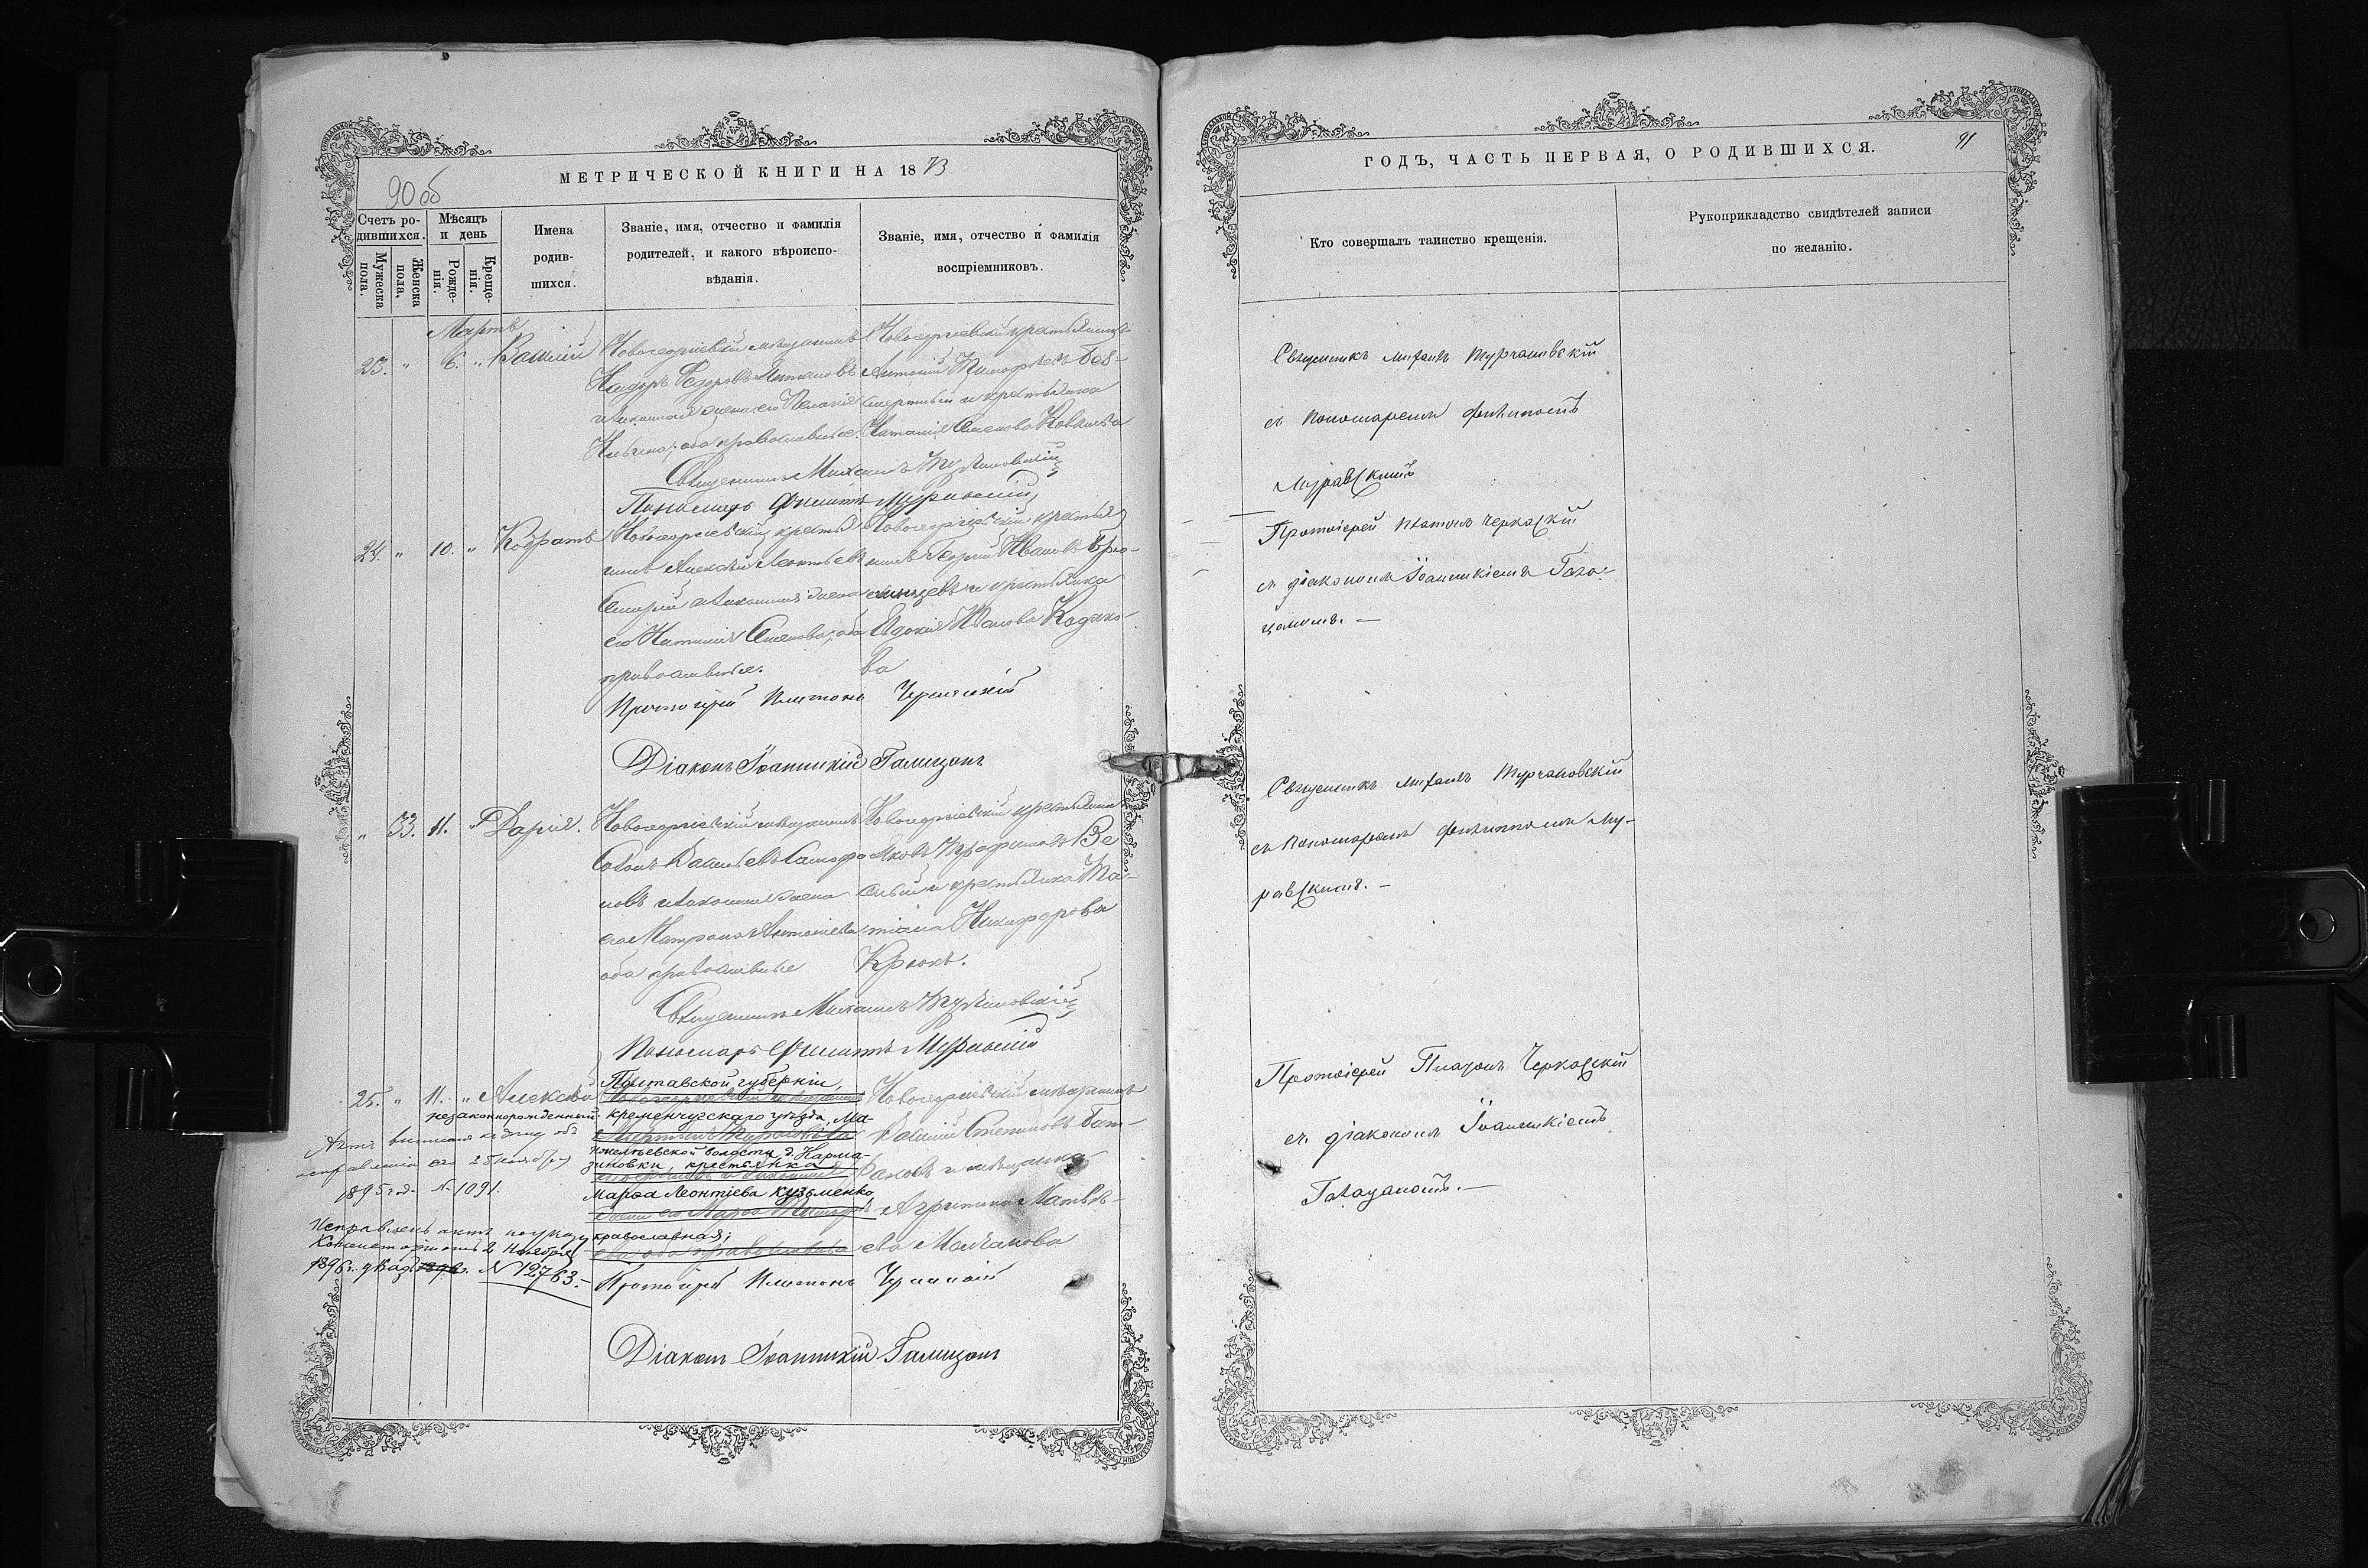 90 об
МЕТРИЧЕСКОЙ КНИГИ НА 1873
Счетъ ро-
дившихся.
Мужеска
пола.
Женска
пола.
Мѣсяцъ
и день
Рожде-
нія.
Креще-
нія.
Имена
родив-
шихся.
Званіе, имя, отчество и фамилія
родителей, и какого вѣроиспо-
вѣданія.
Званіе, имя, отчество и фамилія
воспріемниковъ.
Мартъ
23. " 6. " Василій
Новогеоргіевскій мѣщанинъ
Федоровъ
и законная жена его Пелагія
оба православные.
Новогеоргіевскій крестьянинъ
Антоній Тимофеевъ Без-
смертный и крестьянка
Наталія Семенова Ковалева
Священникъ Михаилъ Турчановскій
Пономарь Филиппъ Муравскій
24. " 10. " Кодратъ
Новогеоргіевскій крестья
нинъ Алексѣй Леонтьевъ
и законная жена
его Наталія Семенова, оба
православные.
Новогеоргіевскій крестья
нинъ Георгій Ивановъ
и крестьянка
Евдокія Иванова
ва
Протоіерей Платонъ Черкаскій
Діаконъ Іоанникій Галицонъ
" 33. 11. " Дарія.
Новогеоргіевскій мѣщанинъ
Васильевъ
новъ и законная жена
его Матрона Антоніева
оба православные
Новогеоргіевскій крестьянинъ
Яковъ Трофимовъ Ве
селый и крестьянка Та-
тіана Никифорова
Крюкъ.
Священникъ Михаилъ Турчановскій
Пономарь Филиппъ Муравскій
25. " 11. " Алексѣй
незаконнорожденный
Полтавской губерніи,
кременчугскаго уѣзда, Ма-
нжелѣевской волости д. Карма-
зиновки, крестьянка
Марѳа Леонтіева Кузьменко
православная;
Новогеоргіевскій мѣщанинъ
Василій Степановъ Бал-
бановъ и мѣщанка
Агрипина Матвѣ-
ева Молчанова
Актъ
исправленія его 28 Ноября
1895 год. № 1091.
Исправленъ актъ по указу
Консисторіи отъ 2 Ноября
1896 г. № 12763.
Протоіерей Платонъ Черкаскій
Діаконъ Іоанникій Галицонъ
ГОДЪ, ЧАСТЬ ПЕРВАЯ, О РОДИВШИХСЯ.
91
Кто совершалъ таинство крещенія.
Рукоприкладство свидѣтелей записи
по желанію.
Священникъ Михаилъ Турчановскій
съ Пономаремъ Филиппомъ
Муравскимъ
Протоіерей Платонъ Черкаскій
съ діакономъ Іоанникіемъ Гали-
цономъ. —
Священникъ Михаилъ Турчановскій
съ Пономаремъ Филиппомъ Му-
равскимъ. —
Протоіерей Платонъ Черкаскій
съ діакономъ Іоанникіемъ
Галицономъ. —